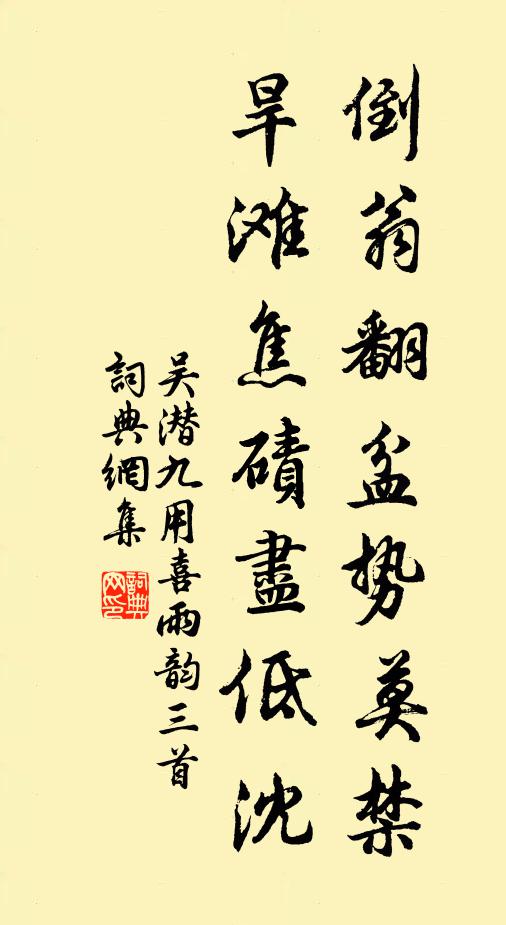 倒翁翻盆势莫禁
旱滩焦磧盡低沈
吴潜九用喜雨韵三首
詞典網集
詞典网印